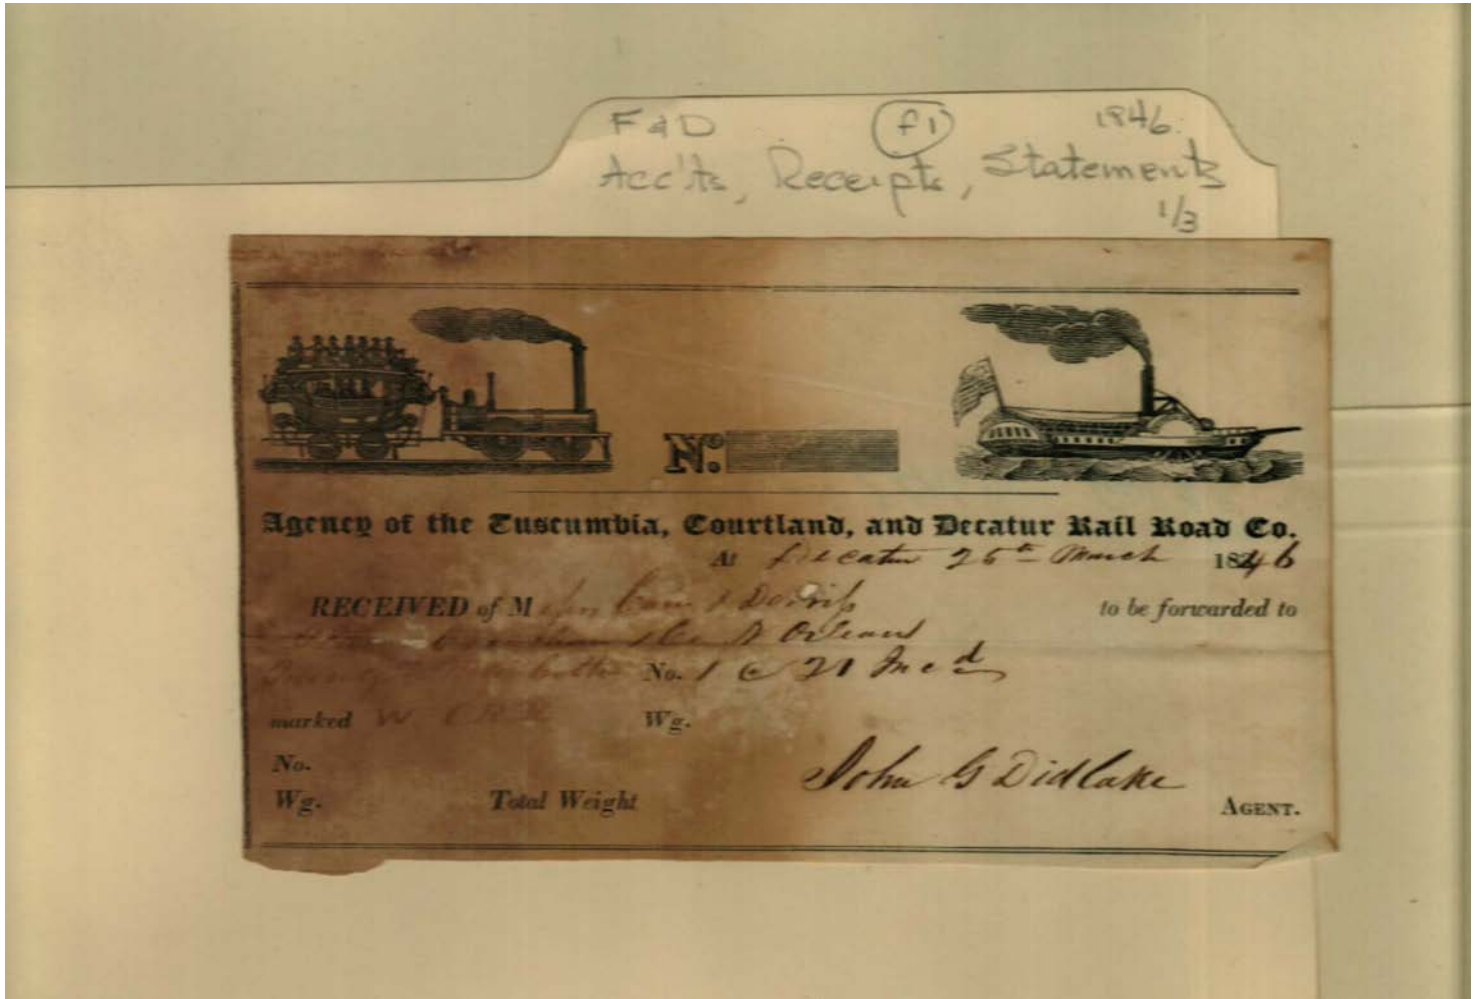 F & D (f1) 1846.
Acc'ts, Receipts, Statements
1/3
No:
Agency of the Tuscumbia, Courtland, and Decatur Rail Road Co.
At Decatur 25th March 1846
RECEIVED of M to be forwarded to
& Co N Orleans
No. 1 @ 21
marked W Wg.
No.
Wg. Total Weight
John G Didlake
AGENT.